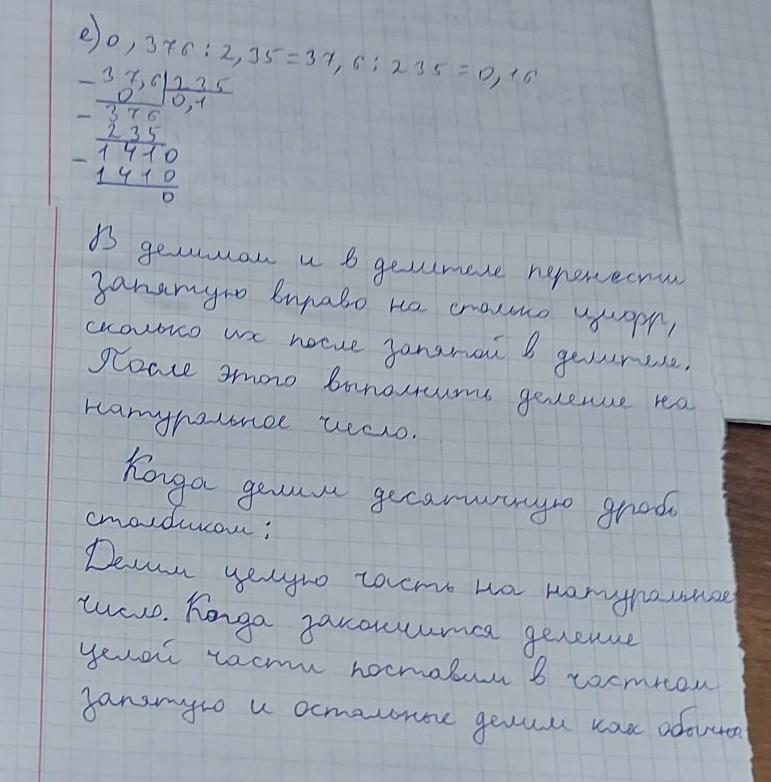 е) 0,376 : 2,35 = 37,6 : 235 = 0,16
- 37,6 | 235
0 | 0,1
- 376
235
- 1410
1410
0
В делимом и в делителе перенести
запятую вправо на столько цифр,
сколько их после запятой в делителе.
После этого выполнить деление на
натуральное число.
Когда делим десятичную дробь
столбиком:
Делим целую часть на натуральное
число. Когда закончится деление
целой части поставим в частном
запятую и остальные делим как обычно